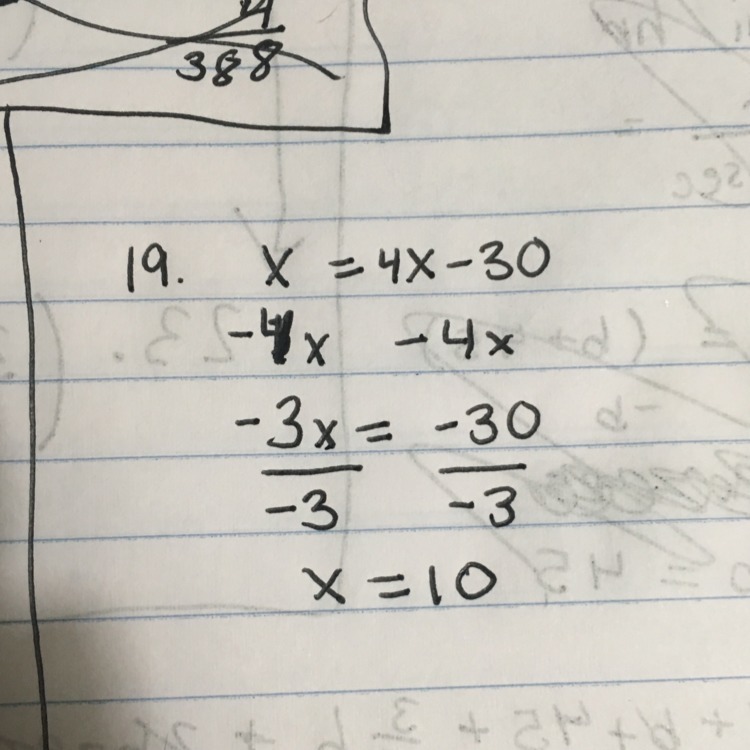 4
388
19. x = 4x - 30
-4x -4x
-3x = -30
-3 -3
x = 10